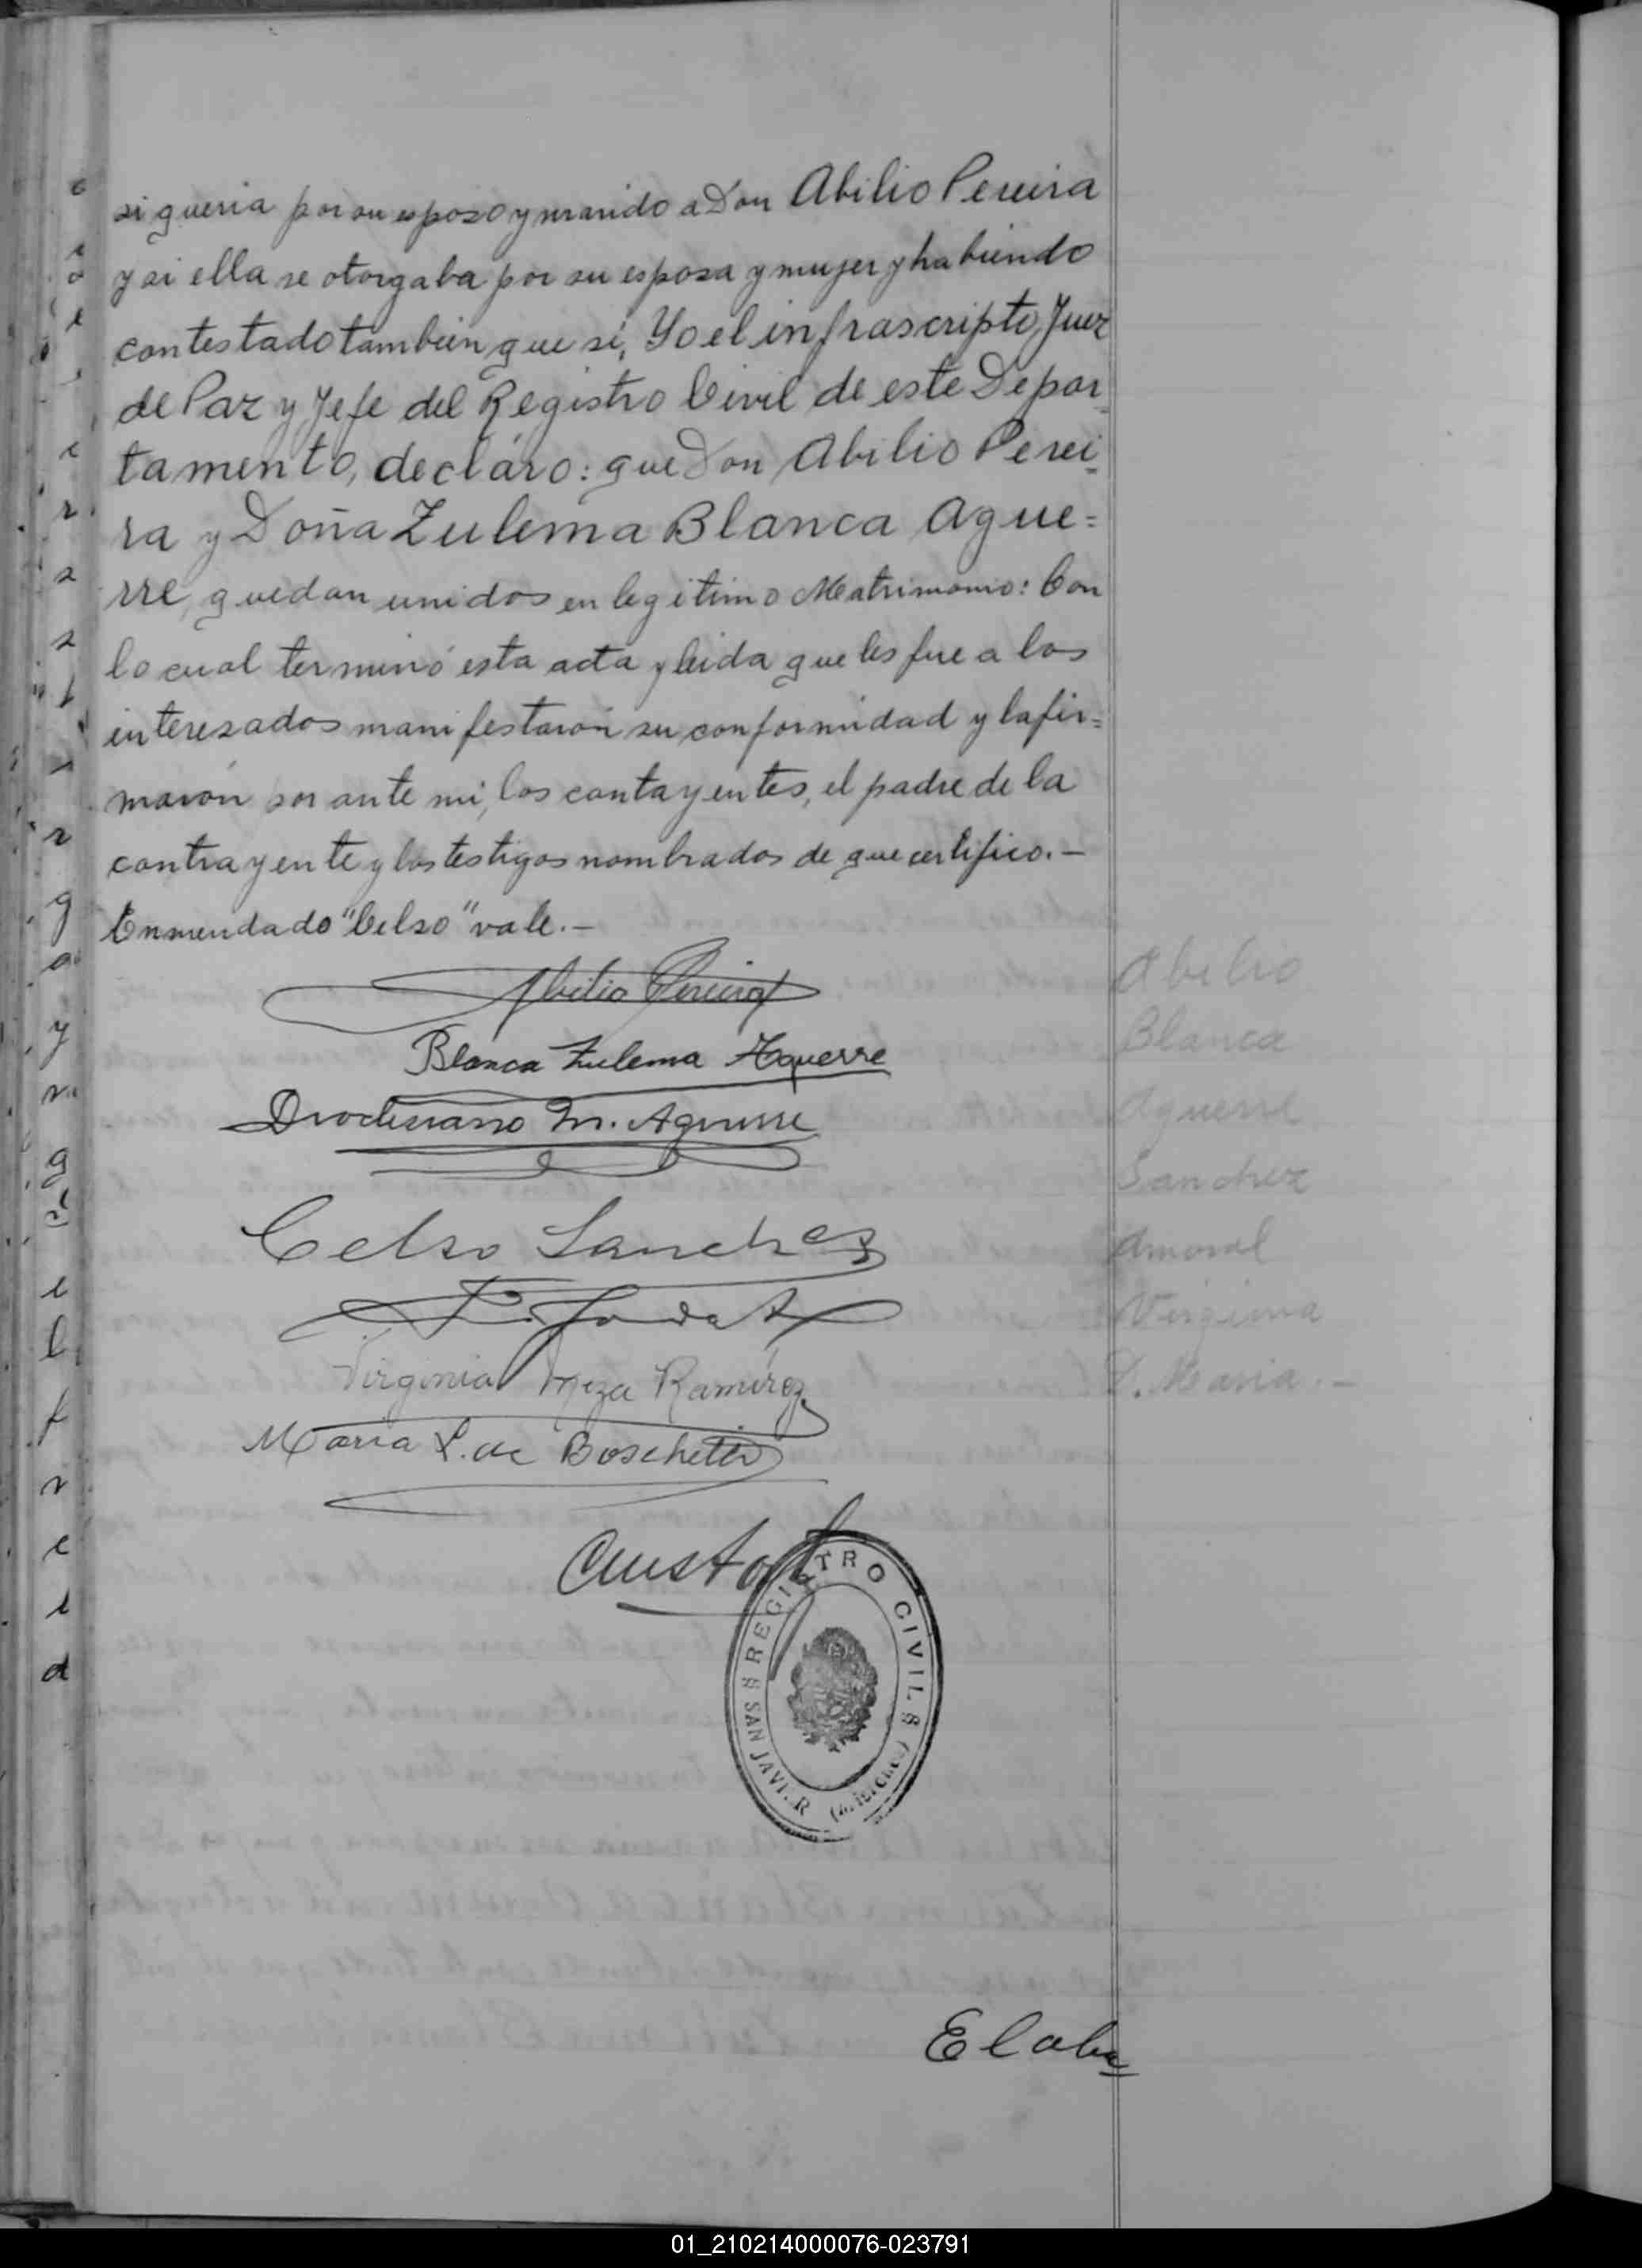 si queria por su esposo y marido a Don Abilio Pereira
y si ella se otorgaba por su esposa y mujer y habiendo
contestado tambien que si, Yo el infrascripto Juez
de Paz y Jefe del Registro Civil de este Depar_
tamento, declaro: que Don Abilio Perei_
ra y Doña Zulema Blanca Ague=
rre, quedan unidos en legitimo Matrimonio: Con
lo cual terminó esta acta y leida que les fue a los
interesados manifestaron su conformidad y la fir=
maron por ante mi, los contayentes, el padre de la
contrayente y los testigos nombrados de que certifico.—
Enmendado "Celso" vale.—
Abilio Pereira
Blanca Zulema Aguerre
M. Aguerre
Celso Sanchez
Virginia Meza Ramírez
Maria L. de Boschetti
REGISTRO CIVIL
SAN JAVIER
(Misiones)
Abilio
Blanca
Aguerre
Sanchez
Amaral
Virginia
Maria.—
01_210214000076-023791